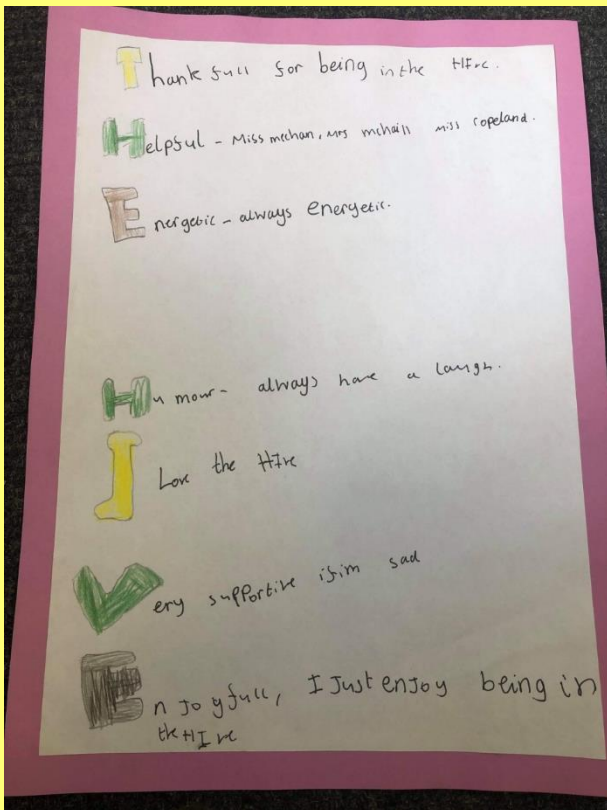 Thankfull for being in the HIve.
Helpful - Miss mechan, Mrs mchail Miss Copeland.
Energetic - always energetic.
Humour - always have a laugh.
I Love the HIve
Very supportive if im sad
Enjoyfull, I Just enjoy being in
the HIve